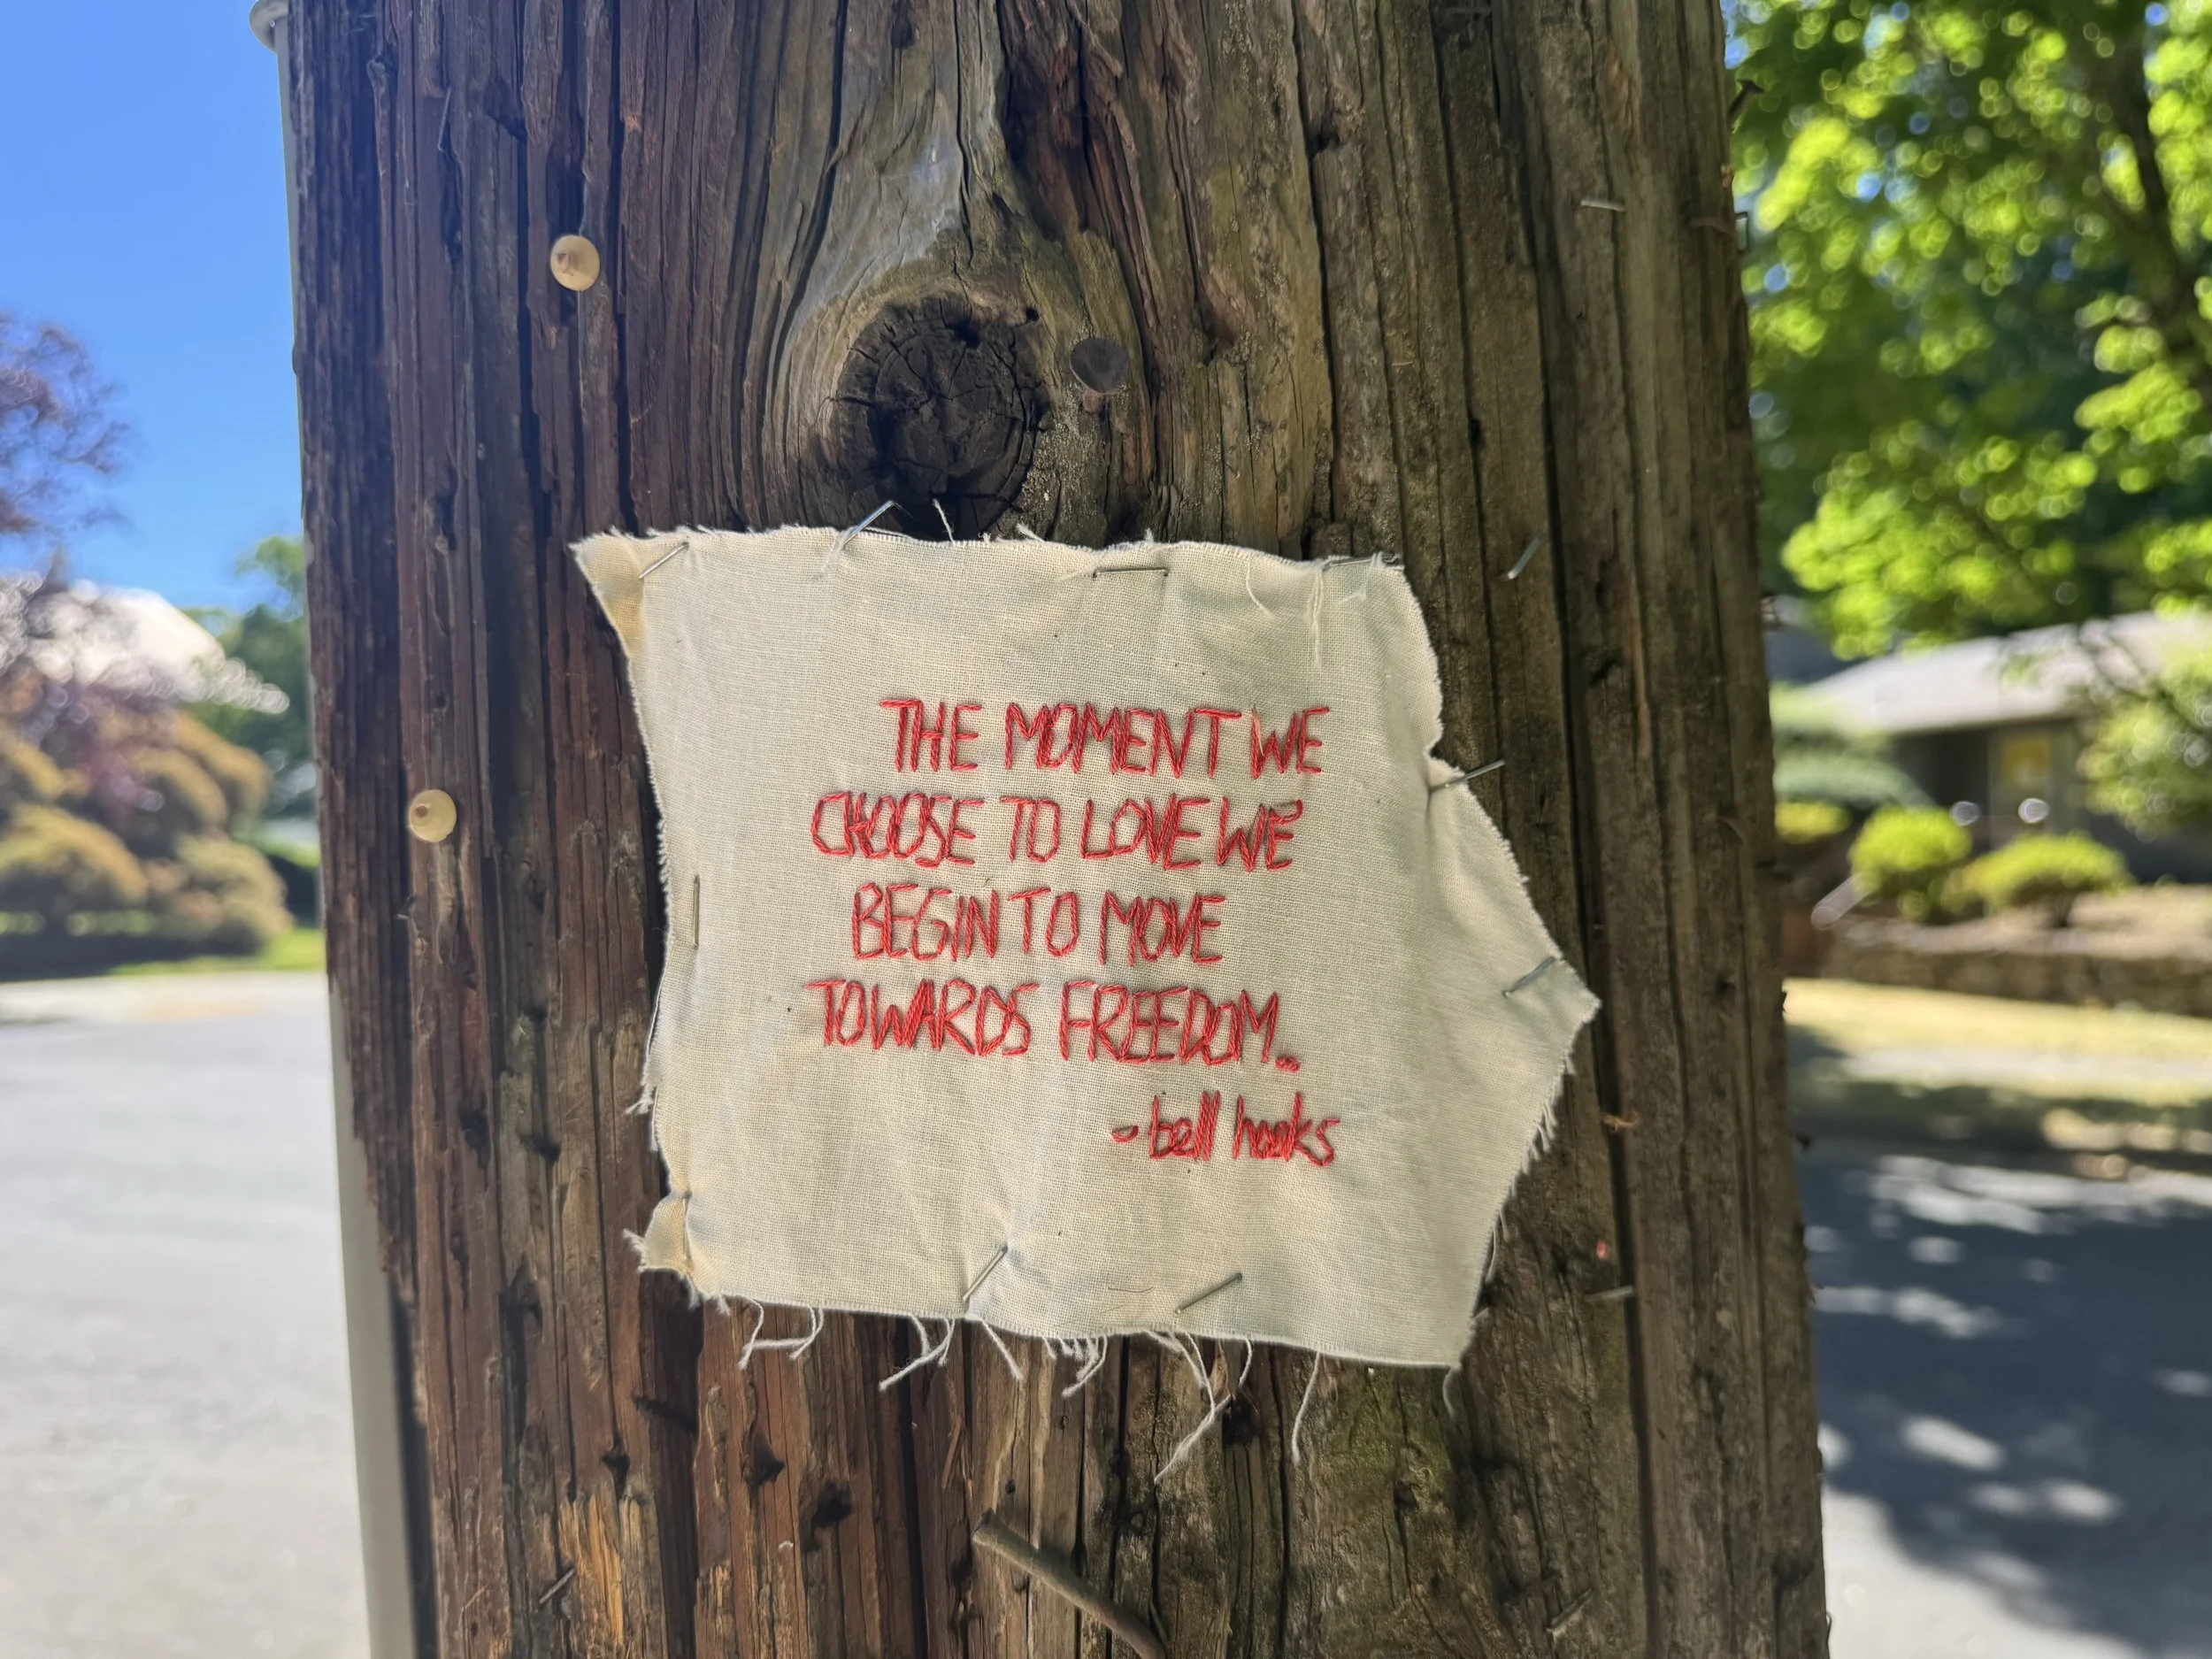 THE MOMENT WE
CHOOSE TO LOVE WE
BEGIN TO MOVE
TOWARDS FREEDOM...
-bell hooks